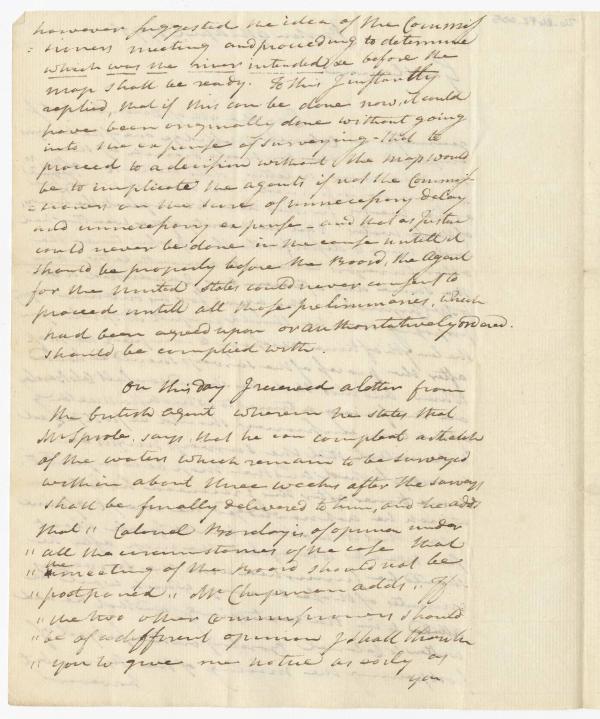 however suggested the idea of the Commis
= sioners meeting and proceeding to determine
which was the river intended, be before the
map shall be ready. To this I instantly
replied, that if this can be done now, it could
have been originally done without going
into the expense of surveying - that to
proceed to a decision without the map would
be to implicate the agents if not the Commis
= sioners on the score of unnecessary delay
and unnecessary expense - and that as Justice
could never be done in the cause untill it
should be properly before the Board, the Agent
for the United States could never consent to
proceed untill all those preliminaries, which
had been agreed upon or authoritatively ordered.
should be complied with.
On this day I received a letter from
the british agent wherein he states that
Mr Sproule, says, that he can compleat a sketch
of the waters which remain to be surveyed
within about three weeks after the surveys
shall be finally delivered to him, and he adds
that " Colonel Barclay is of opinion under
" all the circumstances of the case that
" the meeting of the Board should not be
" postponed " Mr Chipman adds " If
" the two other commissioners should
" be of a different opinion I shall thank
" you to give me notice as early as
you